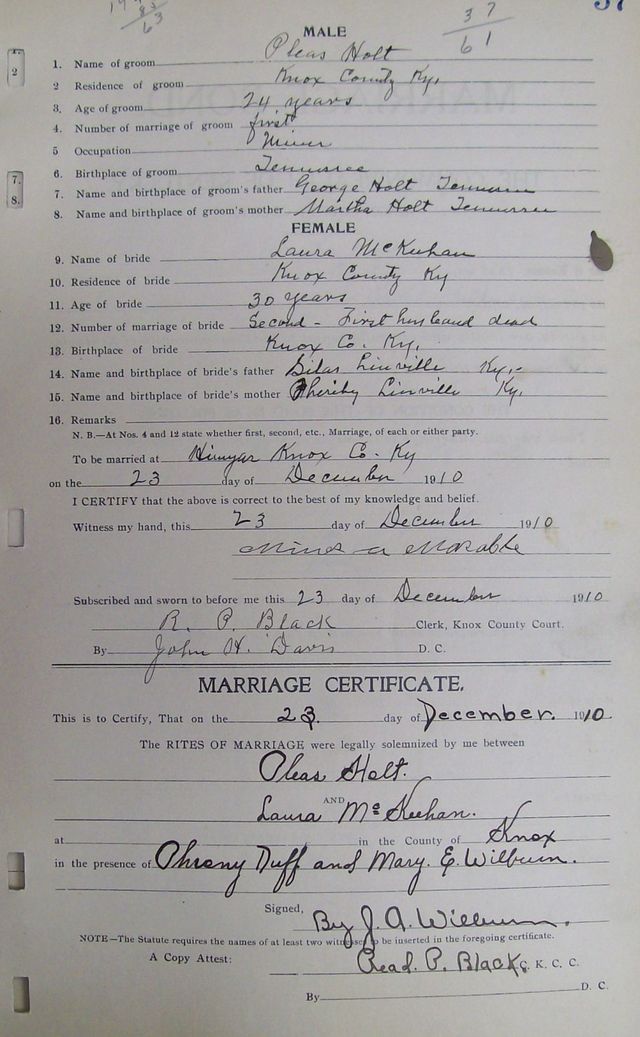 37
61
63
MALE
1. Name of groom Pleas Holt
2 Residence of groom Knox County Ky.
3. Age of groom 24 years
4. Number of marriage of groom first
5 Occupation Miner
6. Birthplace of groom Tennessee
7. Name and birthplace of groom's father George Holt Tennessee
8. Name and birthplace of groom's mother Martha Holt Tennessee
FEMALE
9. Name of bride Laura McKeehan
10. Residence of bride Knox County Ky
11. Age of bride 30 years
12. Number of marriage of bride Second - First husband dead
13. Birthplace of bride Knox Co. Ky.
14. Name and birthplace of bride's father Silas Linville Ky.
15. Name and birthplace of bride's mother Linville Ky.
16. Remarks
N. B.—At Nos. 4 and 12 state whether first, second, etc., Marriage, of each or either party.
To be married at Himyar Knox Co. Ky
on the 23 day of December 1910
I CERTIFY that the above is correct to the best of my knowledge and belief.
Witness my hand, this 23 day of December 1910
Subscribed and sworn to before me this 23 day of December 1910
R. P. Black Clerk, Knox County Court.
By John H. Davis D. C.
MARRIAGE CERTIFICATE.
This is to Certify, That on the 23 day of December. 1910.
The RITES OF MARRIAGE were legally solemnized by me between
Pleas Holt.
AND
Laura McKeehan.
at in the County of Knox
in the presence of Phrony Duff and Mary. E. Wilburn.
Signed, By J. A. Wilburn.
NOTE—The Statute requires the names of at least two witnesses to be inserted in the foregoing certificate.
A Copy Attest: Read. P. Black, C. K. C. C.
By D. C.